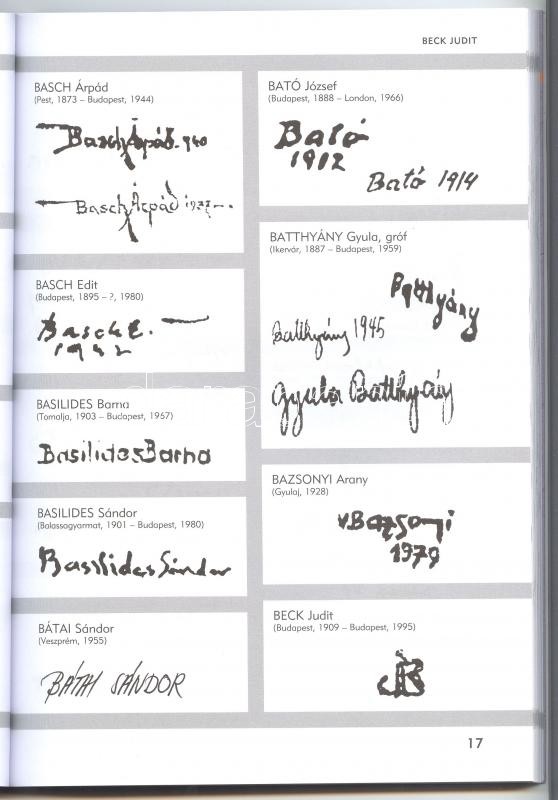 BECK JUDIT
BASCH Árpád
(Pest, 1873 – Budapest, 1944)
Basch Árpád. 940
Basch Árpád
BASCH Edit
(Budapest, 1895 – ?, 1980)
Basch E.
1942
BASILIDES Barna
(Tornalja, 1903 – Budapest, 1967)
Basilides Barna
BASILIDES Sándor
(Balassagyarmat, 1901 – Budapest, 1980)
Basilides Sándor
BÁTAI Sándor
(Veszprém, 1955)
BÁTAI SÁNDOR
BATÓ József
(Budapest, 1888 – London, 1966)
Bató
1912
Bató 1914
BATTHYÁNY Gyula, gróf
(Ikervár, 1887 – Budapest, 1959)
Batthyány
Batthyány 1945
Gyula Batthyány
BAZSONYI Arany
(Gyulaj, 1928)
vBazsonyi
1979
BECK Judit
(Budapest, 1909 – Budapest, 1995)
JB
17